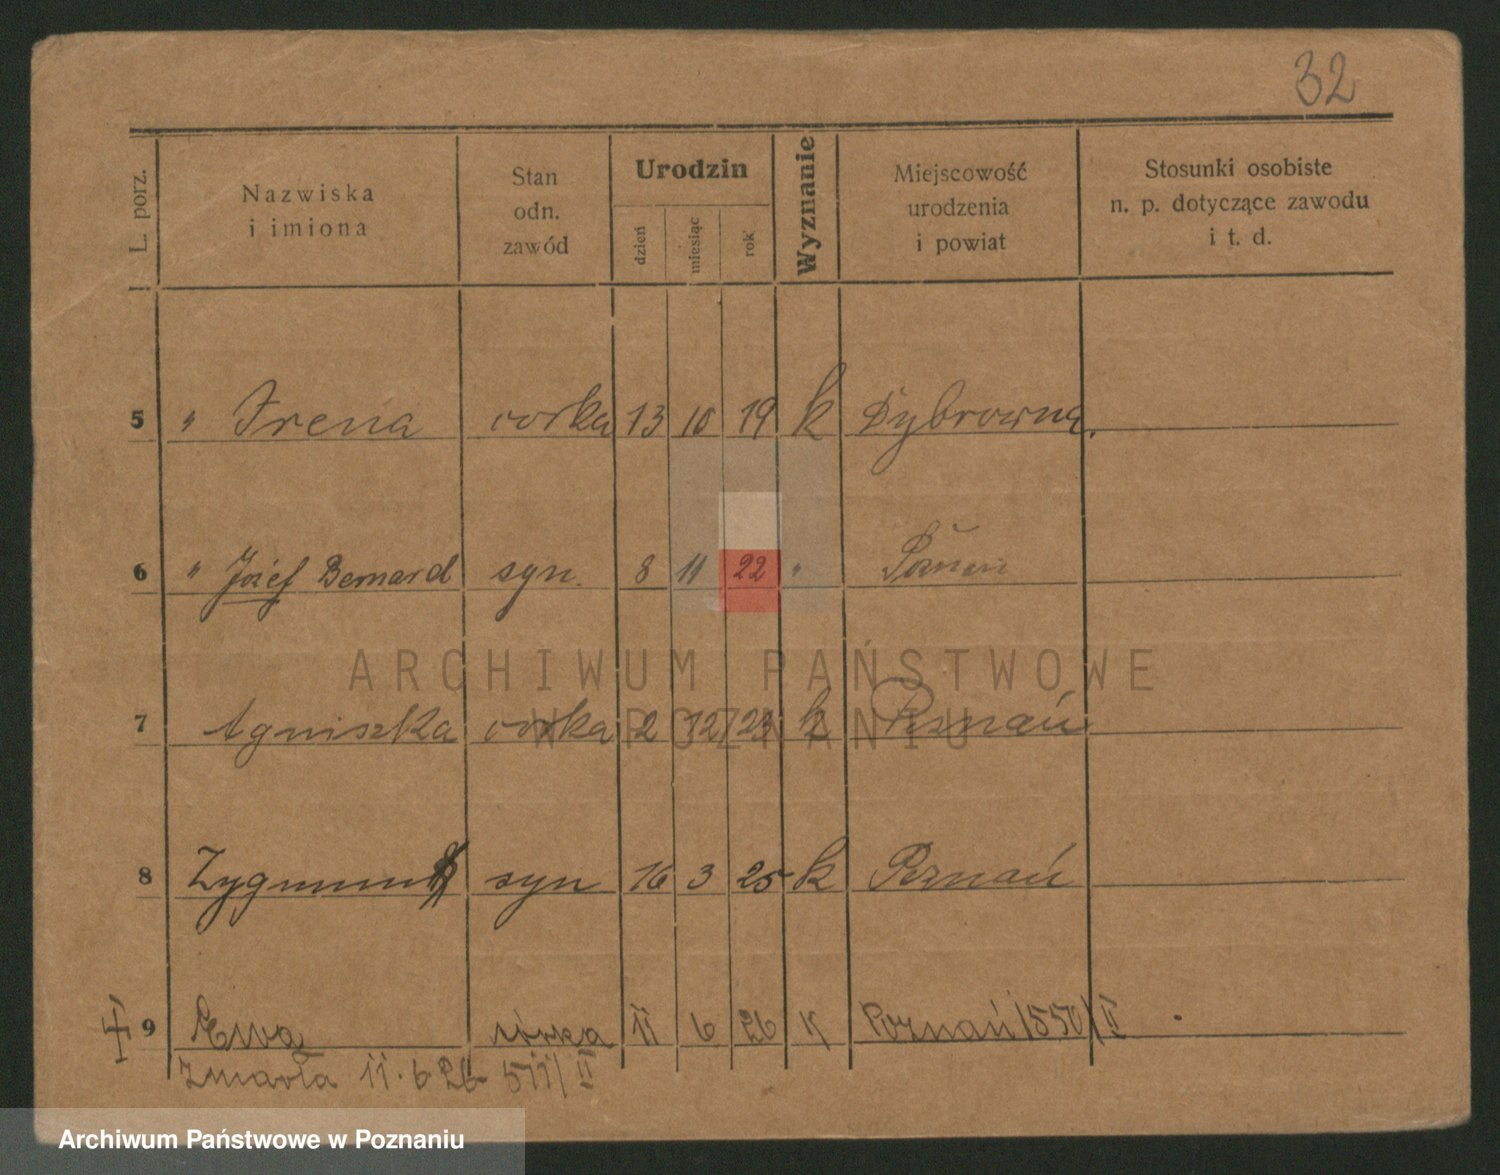 32
L. porz. Nazwiska i imiona Stan odn. zawód Urodzin dzień miesiąc rok Wyznanie Miejscowość urodzenia i powiat Stosunki osobiste n. p. dotyczące zawodu i t. d.
5 " Irena córka 13 10 19 k Dybrowna.
6 " Józef Bernard syn. 8 11 22 " Poznań
ARCHIWUM PAŃSTWOWE
7 Agniszka córka 2 12 23 k Poznań
W POZNANIU
8 Zygmunt syn 16 3 25 k Poznań
9 Ewa córka 11 6 26 K Poznań 1550/II
Zmarła 11.6.26 511/II
Archiwum Państwowe w Poznaniu